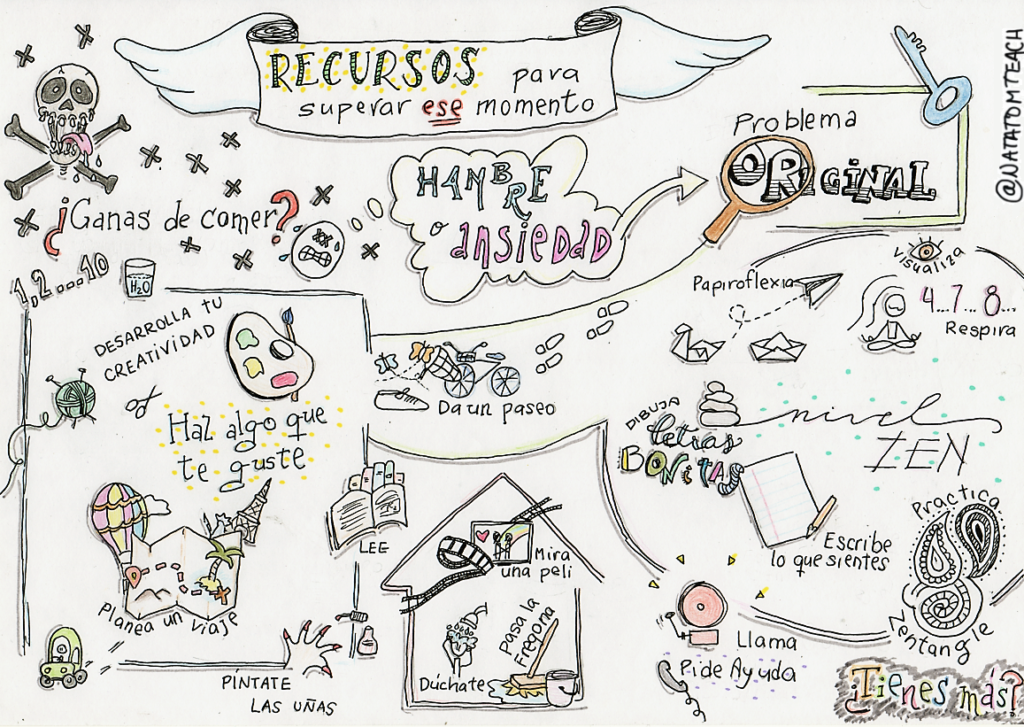 RECURSOS para
superar ese momento
@NATATOMTEACH
¿Ganas de comer?
HAMBRE
o ansiedad
Problema
ORIGINAL
1,2....10
H2O
DESARROLLA TU
CREATIVIDAD
Haz algo que
te guste
LEE
Planea un viaje
PÍNTATE
LAS UÑAS
Da un paseo
Mira
una peli
Dúchate
Pasa la
Fregona
Papiroflexia
Visualiza
4..7..8...
Respira
nivel
ZEN
DIBUJA
letras
BONITAS
Escribe
lo que sientes
Practica
Zentangle
Llama
Pide Ayuda
¿Tienes más?